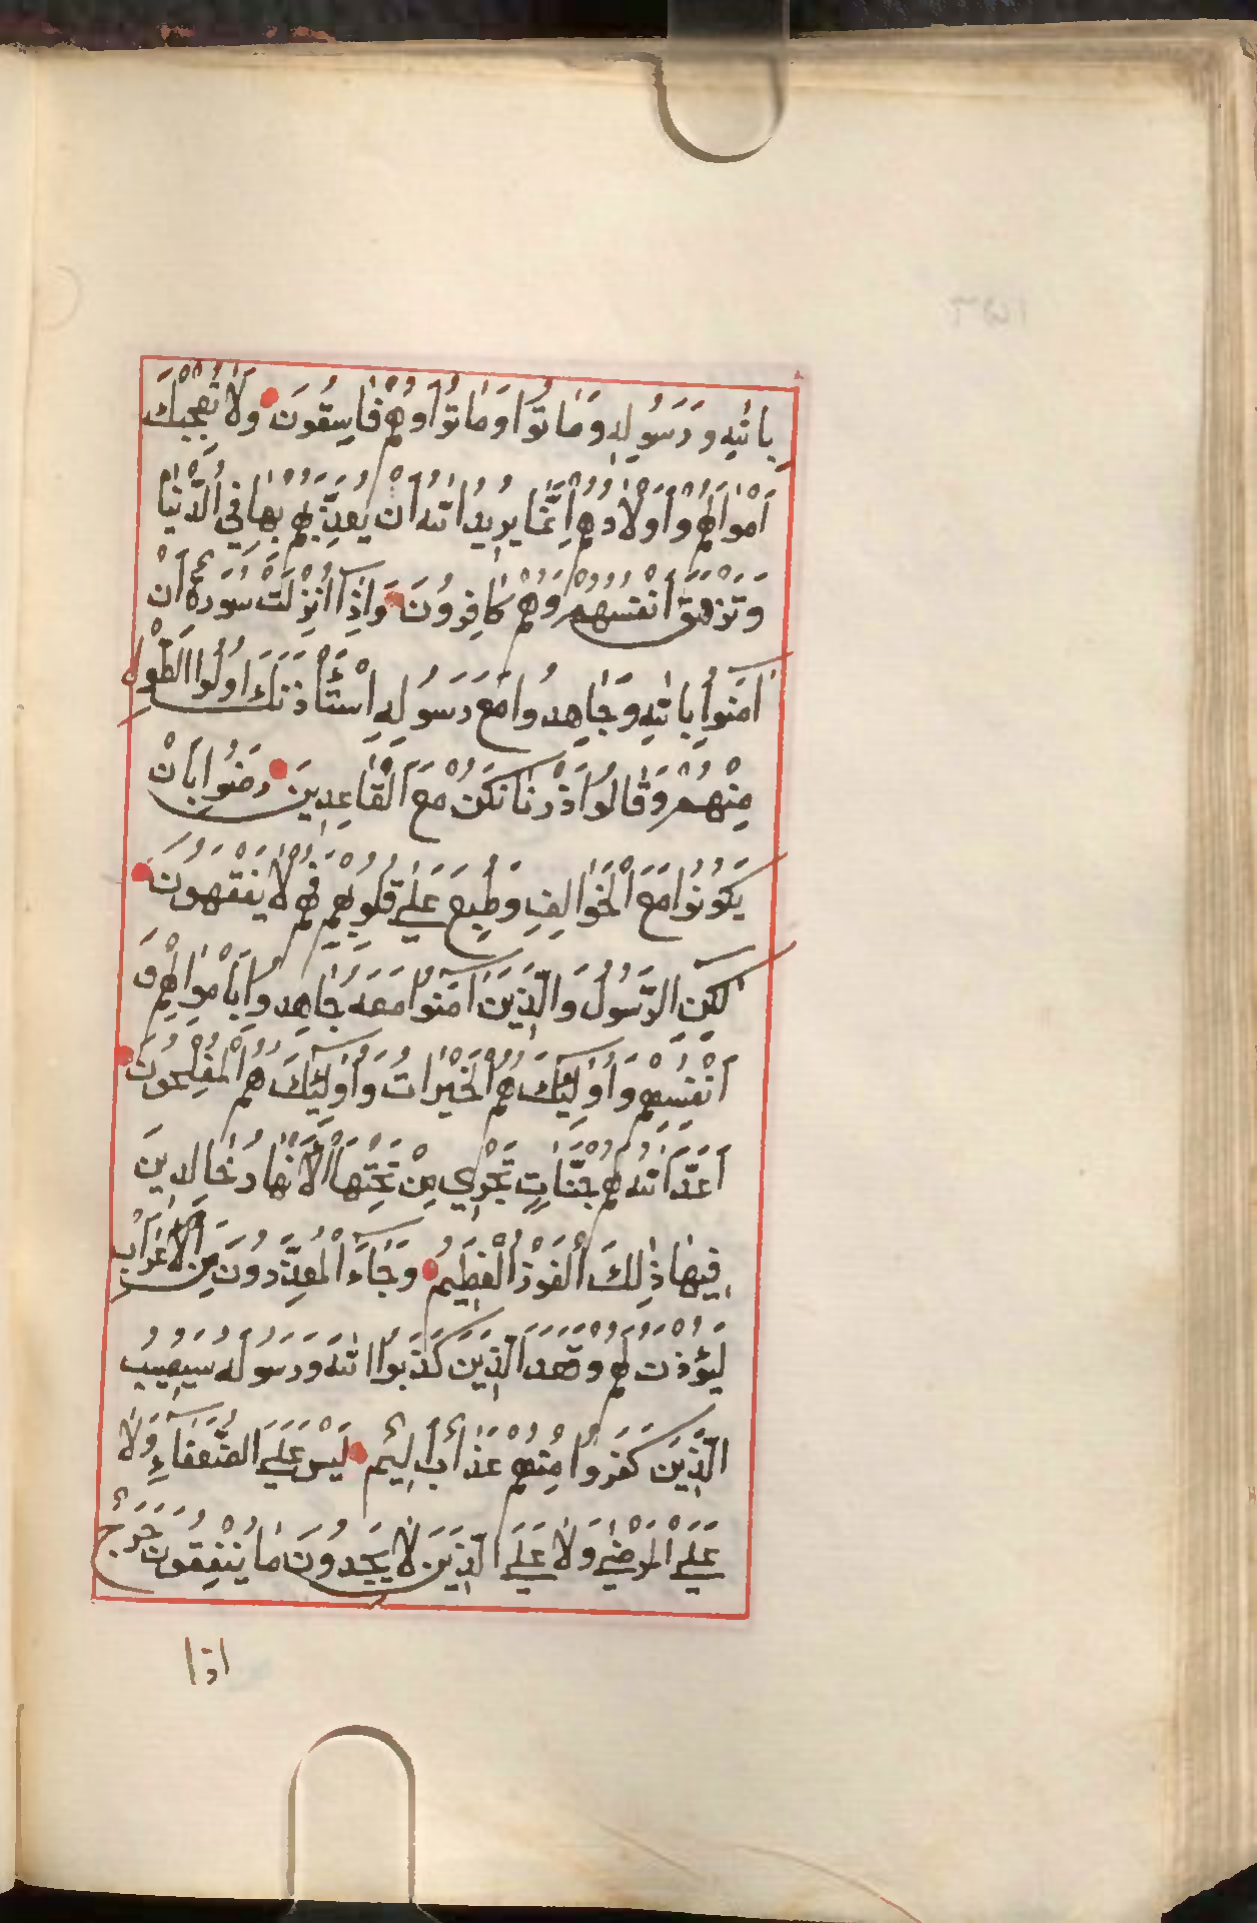 بِاللهِ وَرَسُولِهِ وَمَاتُوا وَمَاتُوا وَهُمْ فَاسِقُونَ وَلَا تُعْجِبْكَ
اَمْوَالُهُمْ وَاَوْلَادُهُمْ اِنَّمَا يُرِيدُ اللهُ اَنْ يُعَذِّبَهُمْ بِهَا فِي الدُّنْيَا
وَتَزْهَقَ اَنْفُسُهُمْ وَهُمْ كَافِرُونَ وَاِذَآ اُنْزِلَتْ سُورَةٌ اَنْ
اٰمَنُوا بِاللهِ وَجَاهِدُوا مَعَ رَسُولِهِ اسْتَأْذَنَكَ اُولُوا الطَّوْلِ
مِنْهُمْ وَقَالُوا ذَرْنَا نَكُنْ مَعَ الْقَاعِدِينَ رَضُوا بِاَنْ
يَكُونُوا مَعَ الْخَوَالِفِ وَطُبِعَ عَلَى قُلُوبِهِمْ فَهُمْ لَا يَفْقَهُونَ
لٰكِنِ الرَّسُولُ وَالَّذِينَ اٰمَنُوا مَعَهُ جَاهَدُوا بِاَمْوَالِهِمْ وَ
اَنْفُسِهِمْ وَاُولٰٓئِكَ لَهُمُ الْخَيْرَاتُ وَاُولٰٓئِكَ هُمُ الْمُفْلِحُونَ
اَعَدَّ اللهُ لَهُمْ جَنَّاتٍ تَجْرِي مِنْ تَحْتِهَا الْاَنْهَارُ خَالِدِينَ
فِيهَا ذٰلِكَ الْفَوْزُ الْعَظِيمُ وَجَآءَ الْمُعَذِّرُونَ مِنَ الْاَعْرَابِ
لِيُؤْذَنَ لَهُمْ وَقَعَدَ الَّذِينَ كَذَبُوا اللهَ وَرَسُولَهُ سَيُصِيبُ
الَّذِينَ كَفَرُوا مِنْهُمْ عَذَابٌ اَلِيمٌ لَيْسَ عَلَى الضُّعَفَآءِ وَلَا
عَلَى الْمَرْضَى وَلَا عَلَى الَّذِينَ لَا يَجِدُونَ مَا يُنْفِقُونَ حَرَجٌ
اذا